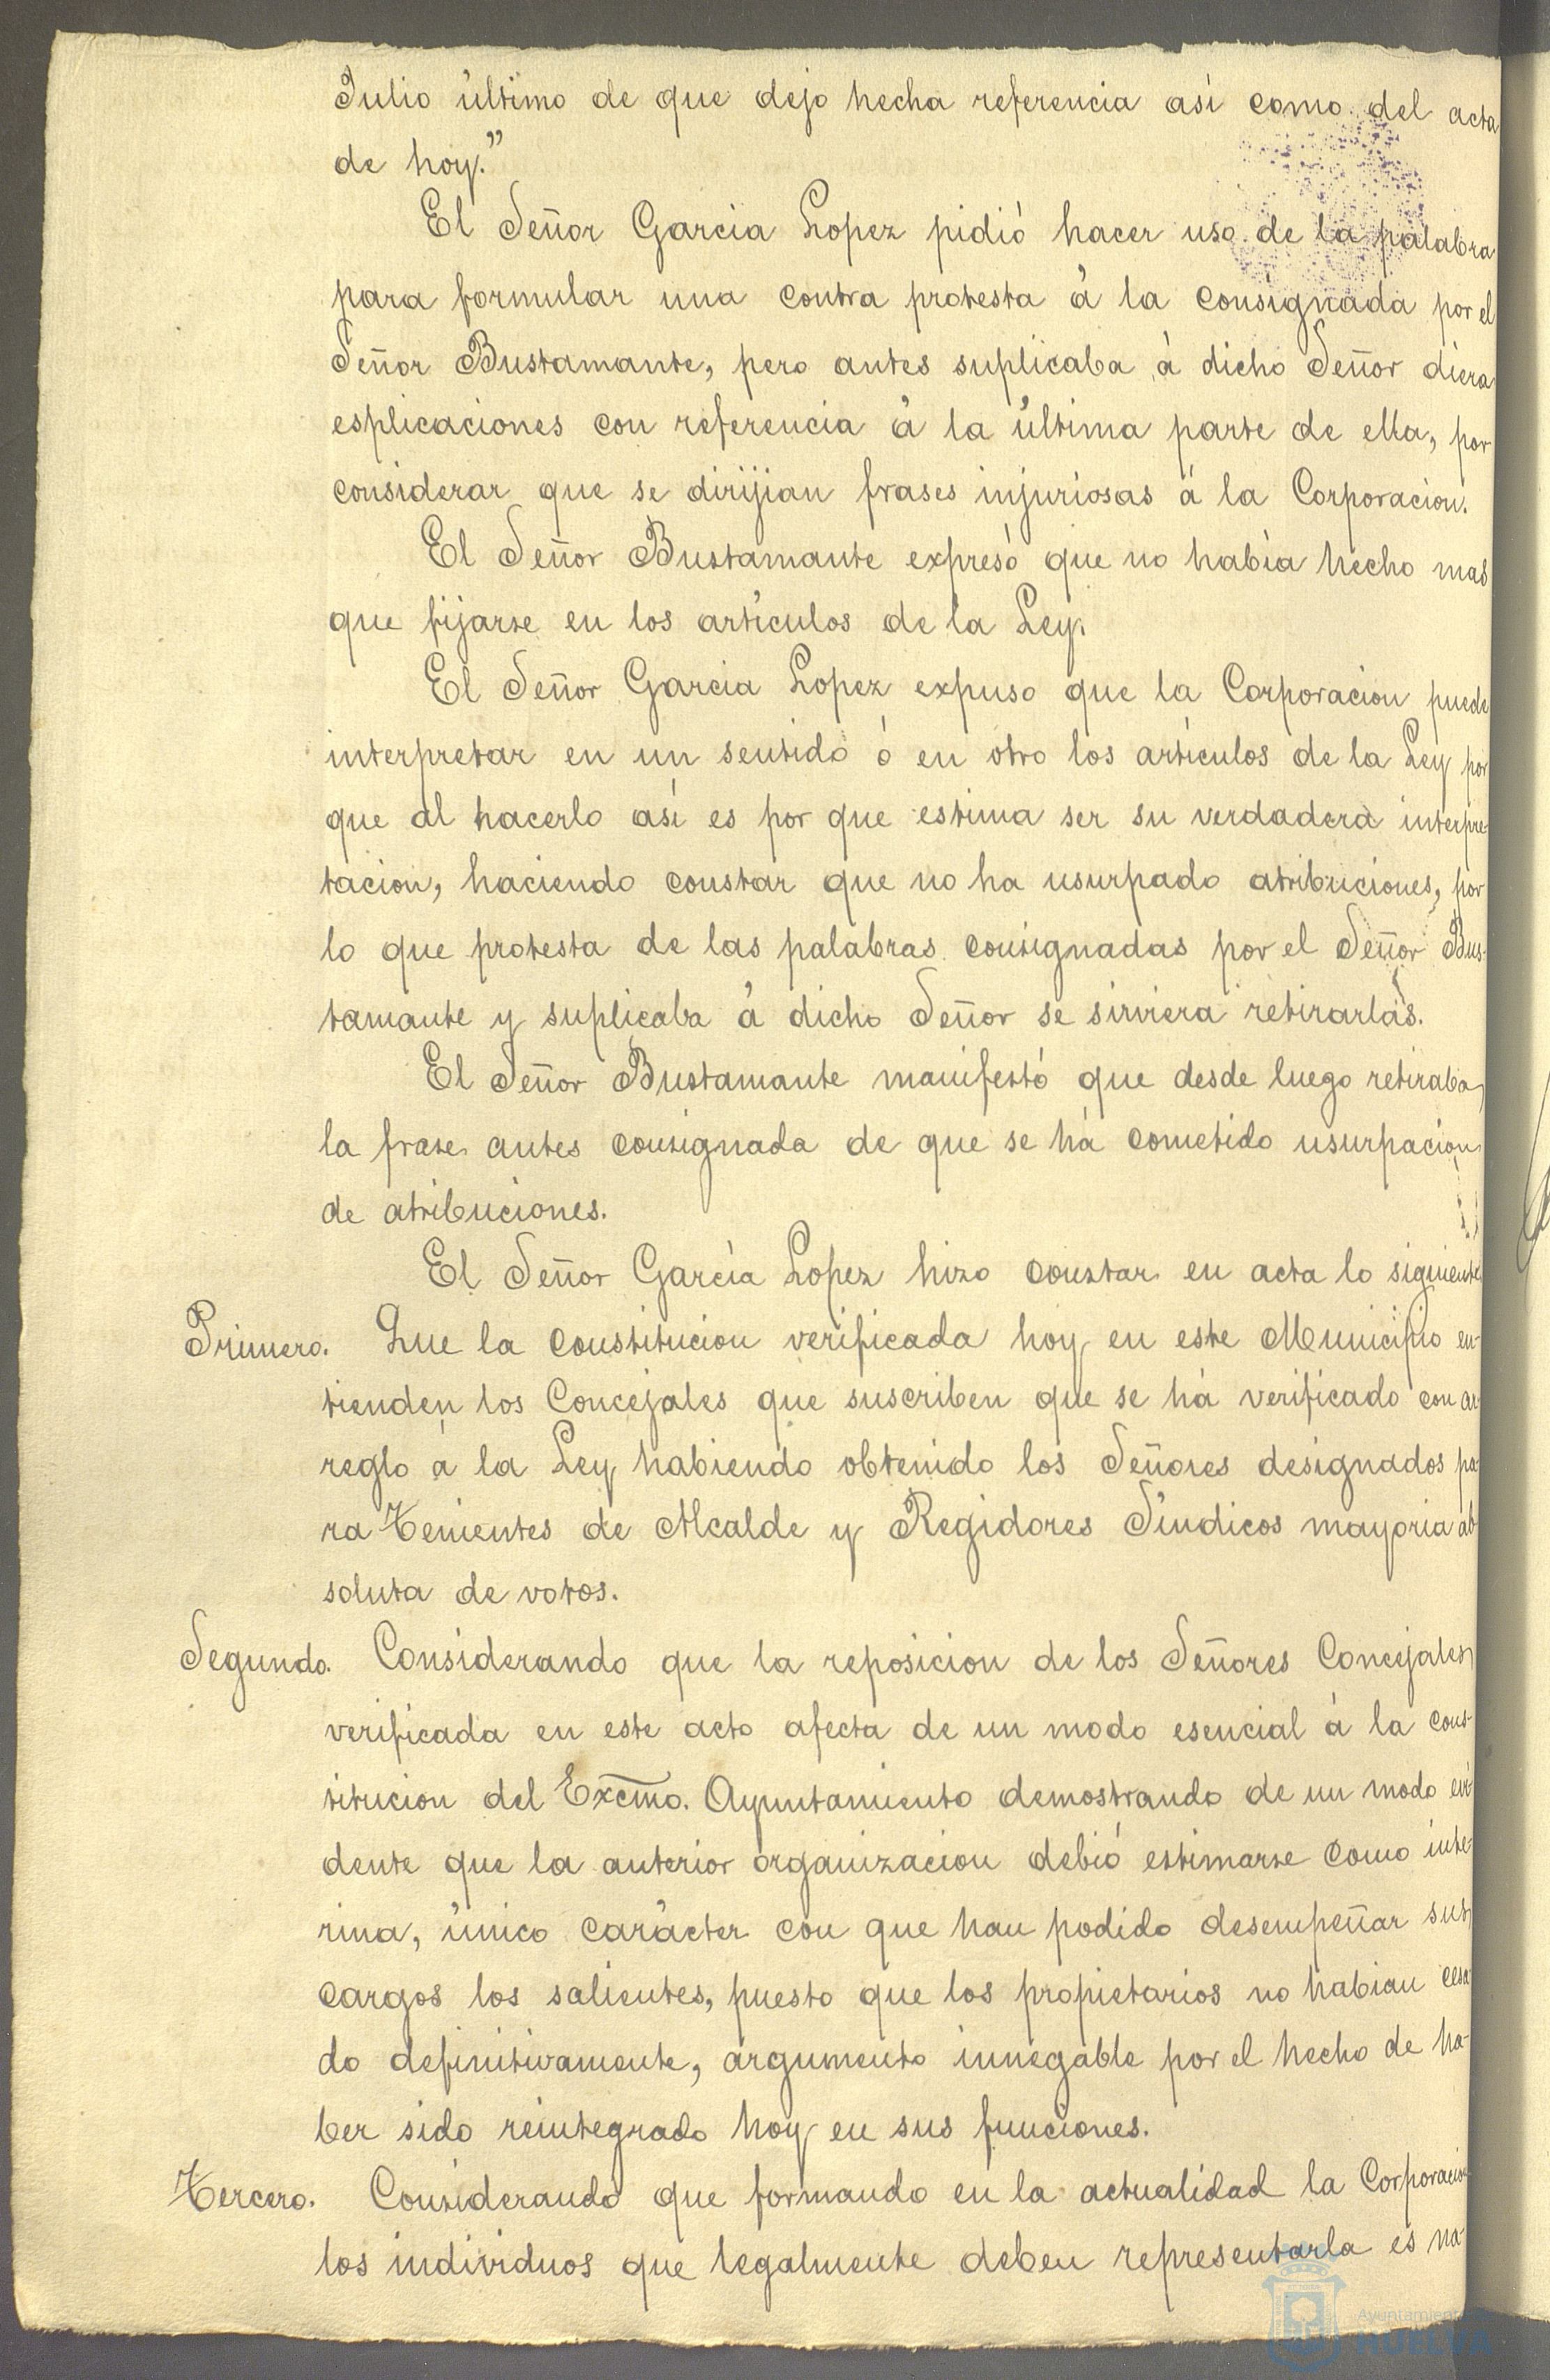 Julio último de que dejo hecha referencia así como del acta
de hoy."
El Señor Garcia Lopez pidió hacer uso de la palabra
para formular una contra protesta á la consignada por el
Señor Bustamante, pero antes suplicaba á dicho Señor diera
esplicaciones con referencia á la última parte de ella, por
considerar que se dirijian frases injuriosas á la Corporacion.
El Señor Bustamante expresó que no había hecho mas
que fijarse en los artículos de la Ley.
El Señor Garcia Lopez expuso que la Corporacion puede
interpretar en un sentido ó en otro los artículos de la Ley por
que al hacerlo así es por que estima ser su verdadera interpre-
tacion, haciendo constar que no ha usurpado atribuciones, por
lo que protesta de las palabras consignadas por el Señor Bus-
tamante y suplicaba á dicho Señor se sirviera retirarlas.
El Señor Bustamante manifestó que desde luego retiraba
la frase antes consignada de que se há cometido usurpacion
de atribuciones.
El Señor García Lopez hizo constar en acta lo siguiente
Primero. Que la constitucion verificada hoy en este Municipio en-
tienden los Concejales que suscriben que se há verificado con ar-
reglo á la Ley habiendo obtenido los Señores designados pa-
ra Tenientes de Alcalde y Regidores Síndicos mayoria ab-
soluta de votos.
Segundo. Considerando que la reposicion de los Señores Concejales
verificada en este acto afecta de un modo esencial á la cons-
titucion del Excmo. Ayuntamiento demostrando de un modo evi-
dente que la anterior organizacion debió estimarse como inte-
rina, único carácter con que han podido desempeñar sus
cargos los salientes, puesto que los propietarios no habian cesa-
do definitivamente, argumento innegable por el hecho de ha-
ber sido reintegrado hoy en sus funciones.
Tercero. Considerando que formando en la actualidad la Corporacion
los individuos que legalmente deben representarla es na-
Ayuntamiento
HUELVA